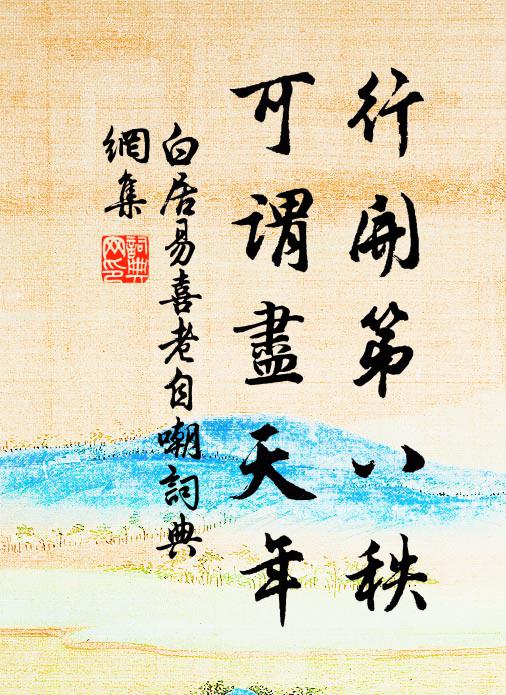 行開第八秩
可謂盡天年
白居易喜老自嘲詞典
網集
詞典
网印